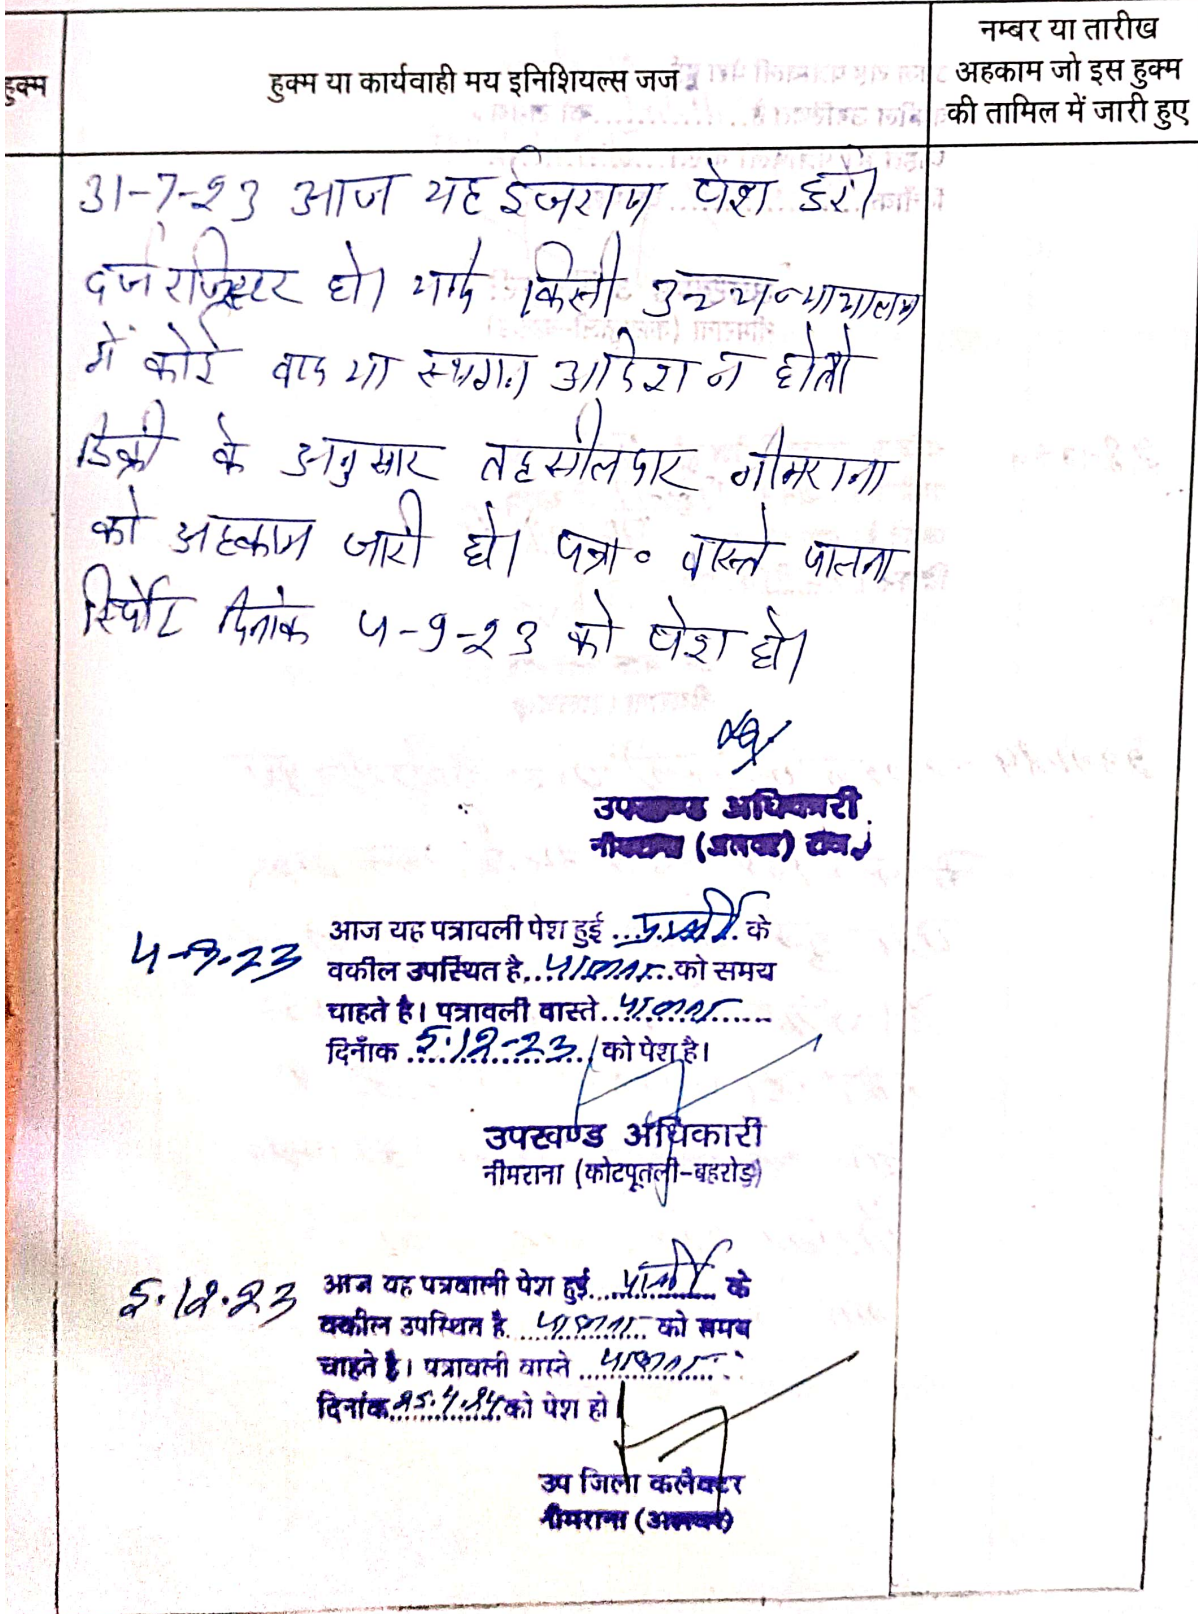 हुक्म
हुक्म या कार्यवाही मय इनिशियल्स जज
नम्बर या तारीख
अहकाम जो इस हुक्म
की तामिल में जारी हुए
31-7-23 आज यह ईजराय पेश हुई।
दर्ज रजिस्टर हो। यदि किसी उच्च न्यायालय
में कोई वाद या स्थगन आदेश न हो तो
डिक्री के अनुसार तहसीलदार नीमराना
को अहकाम जारी हो। पत्रा० वास्ते पालना
रिर्पोट दिनांक 4-9-23 को पेश हो।
उपखण्ड अधिकारी
नीमराना (अलवर) राज.
4-9-23
आज यह पत्रावली पेश हुई ... प्रार्थी ... के
वकील उपस्थित है.. पालना ... को समय
चाहते है। पत्रावली वास्ते .. पालना ......
दिनाँक 5.12-23 को पेश है।
उपखण्ड अधिकारी
नीमराना (कोटपूतली-बहरोड़)
5.12.23
आज यह पत्रवाली पेश हुई.... प्रार्थी ..... के
वकील उपस्थित है. पालना को समय
चाहते है। पत्रावली वास्ते पालना
दिनांक 25.4.24 को पेश हो।
उप जिला कलैक्टर
नीमराना (अलवर)